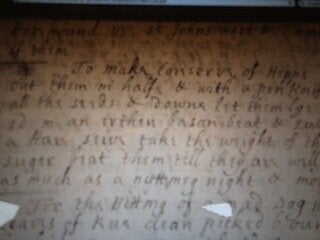 Horehound us: st Johns wort &
of them
To make Conserve of Hipps
cut them in halfe & with a pen knife
all the seeds & downe let them lye
in an erthen bason beat &
a Hare seive take the weight of th
suger beat them till they are well
as much as a nuttmeg night & mor
For the Bitting of a mad Dog
leavs of Rue clean picked &